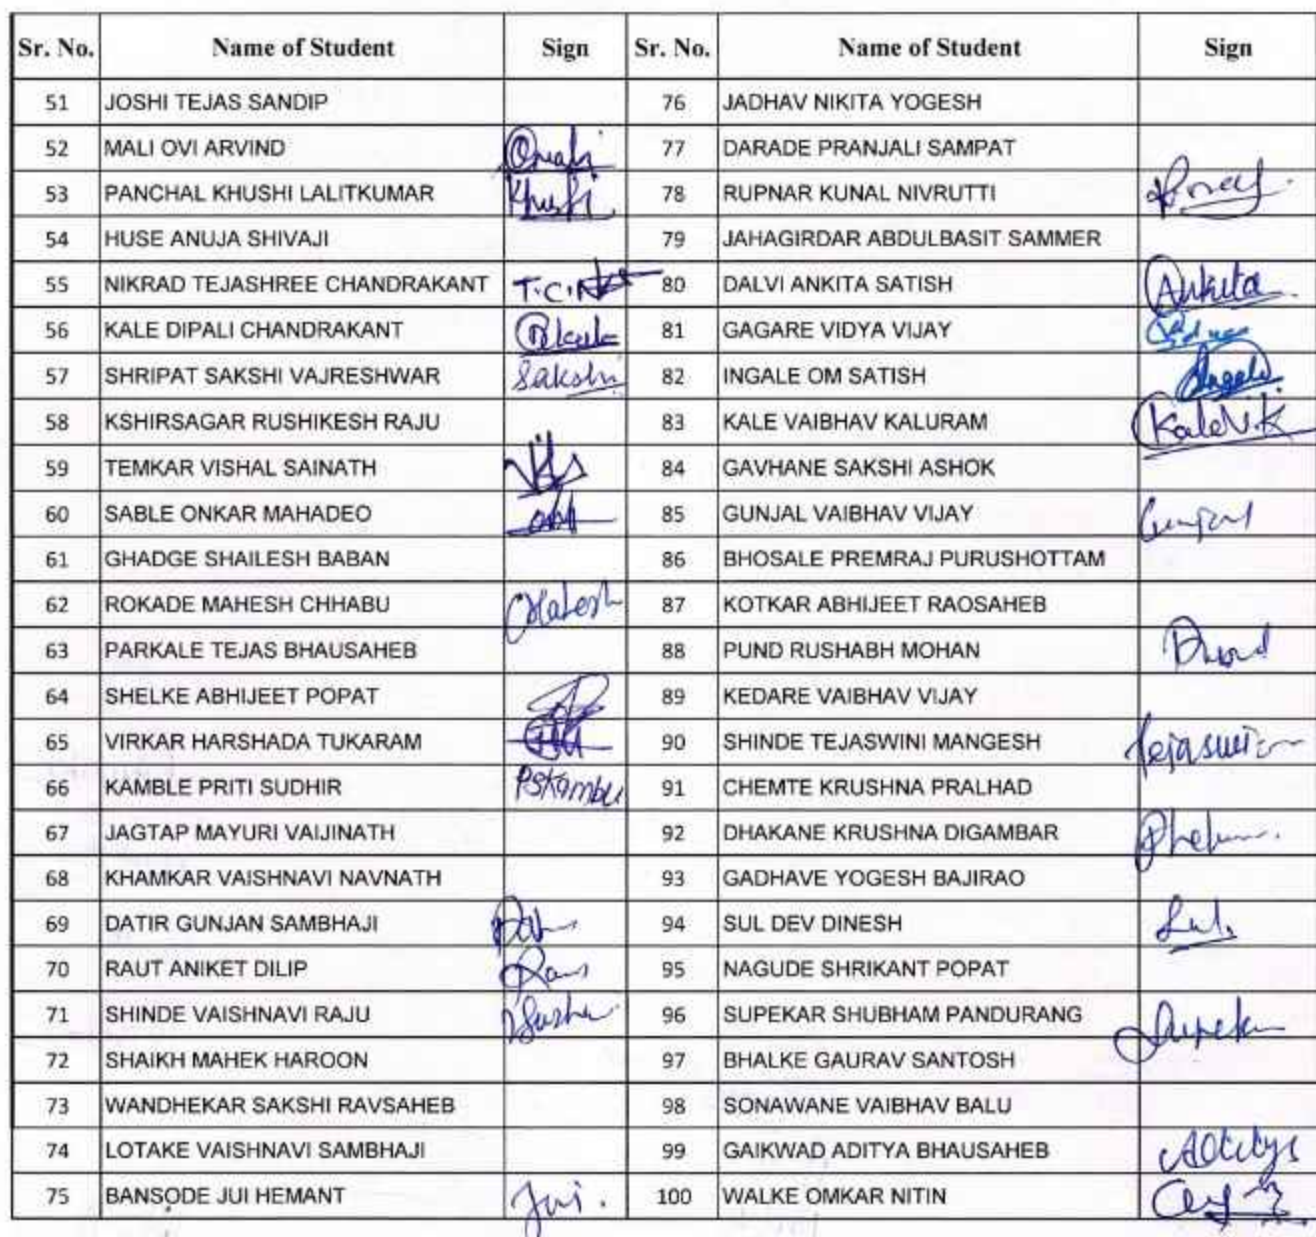 Sr. No. Name of Student Sign Sr. No. Name of Student Sign
51 JOSHI TEJAS SANDIP 76 JADHAV NIKITA YOGESH
52 MALI OVI ARVIND 77 DARADE PRANJALI SAMPAT
53 PANCHAL KHUSHI LALITKUMAR Khushi 78 RUPNAR KUNAL NIVRUTTI
54 HUSE ANUJA SHIVAJI 79 JAHAGIRDAR ABDULBASIT SAMMER
55 NIKRAD TEJASHREE CHANDRAKANT 80 DALVI ANKITA SATISH Ankita
56 KALE DIPALI CHANDRAKANT 81 GAGARE VIDYA VIJAY
57 SHRIPAT SAKSHI VAJRESHWAR Sakshi 82 INGALE OM SATISH
58 KSHIRSAGAR RUSHIKESH RAJU 83 KALE VAIBHAV KALURAM KaleV.K
59 TEMKAR VISHAL SAINATH 84 GAVHANE SAKSHI ASHOK
60 SABLE ONKAR MAHADEO 85 GUNJAL VAIBHAV VIJAY Gunjal
61 GHADGE SHAILESH BABAN 86 BHOSALE PREMRAJ PURUSHOTTAM
62 ROKADE MAHESH CHHABU 87 KOTKAR ABHIJEET RAOSAHEB
63 PARKALE TEJAS BHAUSAHEB 88 PUND RUSHABH MOHAN
64 SHELKE ABHIJEET POPAT 89 KEDARE VAIBHAV VIJAY
65 VIRKAR HARSHADA TUKARAM 90 SHINDE TEJASWINI MANGESH
66 KAMBLE PRITI SUDHIR 91 CHEMTE KRUSHNA PRALHAD
67 JAGTAP MAYURI VAIJINATH 92 DHAKANE KRUSHNA DIGAMBAR
68 KHAMKAR VAISHNAVI NAVNATH 93 GADHAVE YOGESH BAJIRAO
69 DATIR GUNJAN SAMBHAJI 94 SUL DEV DINESH Sul
70 RAUT ANIKET DILIP 95 NAGUDE SHRIKANT POPAT
71 SHINDE VAISHNAVI RAJU 96 SUPEKAR SHUBHAM PANDURANG
72 SHAIKH MAHEK HAROON 97 BHALKE GAURAV SANTOSH
73 WANDHEKAR SAKSHI RAVSAHEB 98 SONAWANE VAIBHAV BALU
74 LOTAKE VAISHNAVI SAMBHAJI 99 GAIKWAD ADITYA BHAUSAHEB
75 BANSODE JUI HEMANT Jui. 100 WALKE OMKAR NITIN